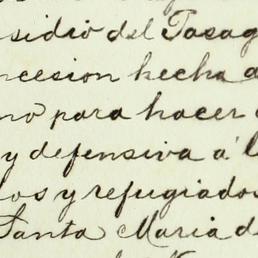 sidio del Pasag
ncesion hecha a
no para hacer
y defensiva á l
los y refugiados
Santa Maria d